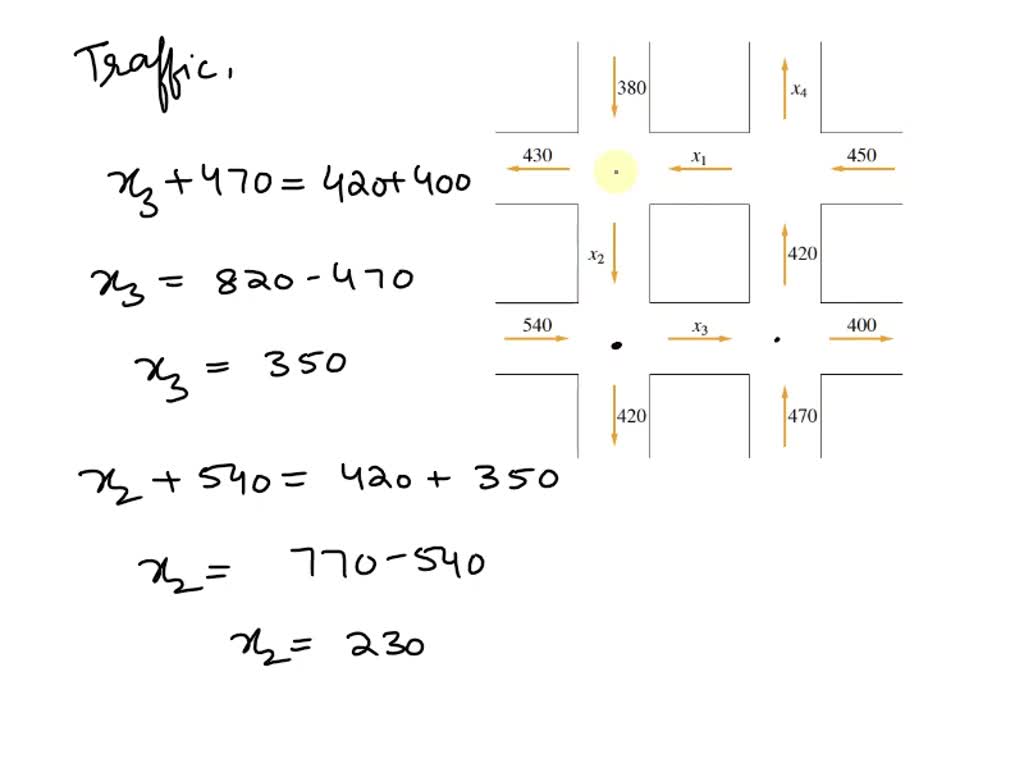 Traffic.
x3 + 470 = 420 + 400
x3 = 820 - 470
x3 = 350
x2 + 540 = 420 + 350
x2 = 770 - 540
x2 = 230
380
x4
430
x1
450
x2
420
540
x3
400
420
470